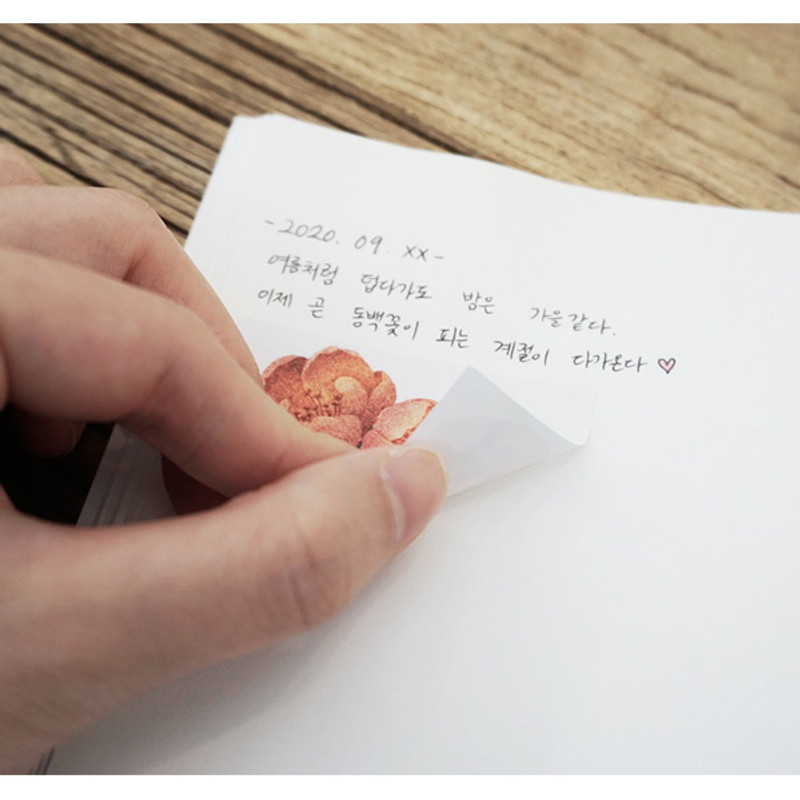 -2020. 09. XX-
여름처럼 덥다가도 밤은 가을같다.
이제 곧 동백꽃이 피는 계절이 다가온다♡